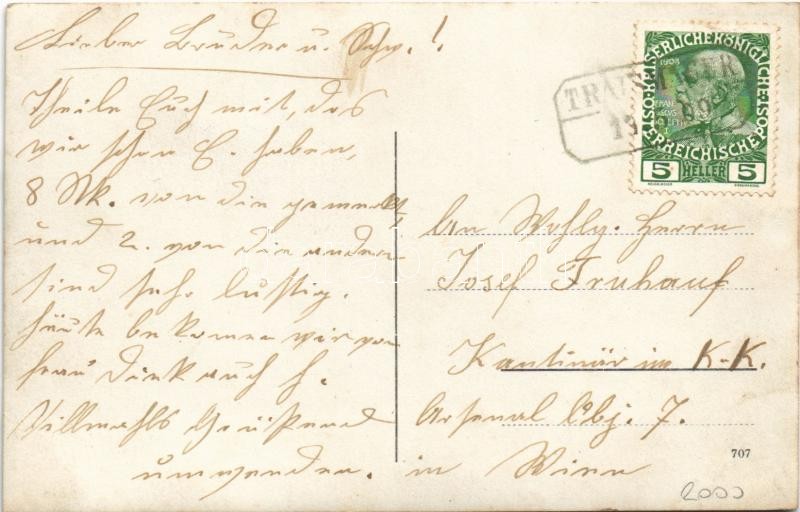 Lieber Bruder u. Schw.!
Theile Euch mit, das
wir schon E. haben,
8 Stk. von die
und 2. von die andern
sind sehr lustig.
Heute bekomen wir von
Frau Dirk auch h.
Villmahls Grüßend
umwenden.
KAISERLICHEKÖNIGLICHE ÖSTERREICHISCHE POST
1908
5 HELLER 5
An Wohlg. Herrn
Josef Fruhauf
Kantinär im K.-K.
Arsenal Obj. 7.
in Wien
707
2000